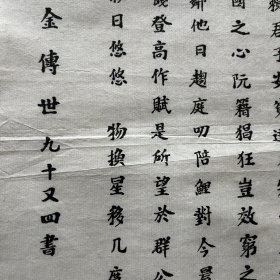 君子安貧達
國之心阮籍猖狂豈效窮之
鄰他日趨庭叨陪鯉對今晨
餞登高作賦是所望於群公
影日悠悠 物換星移几度
金傳世九十又四書